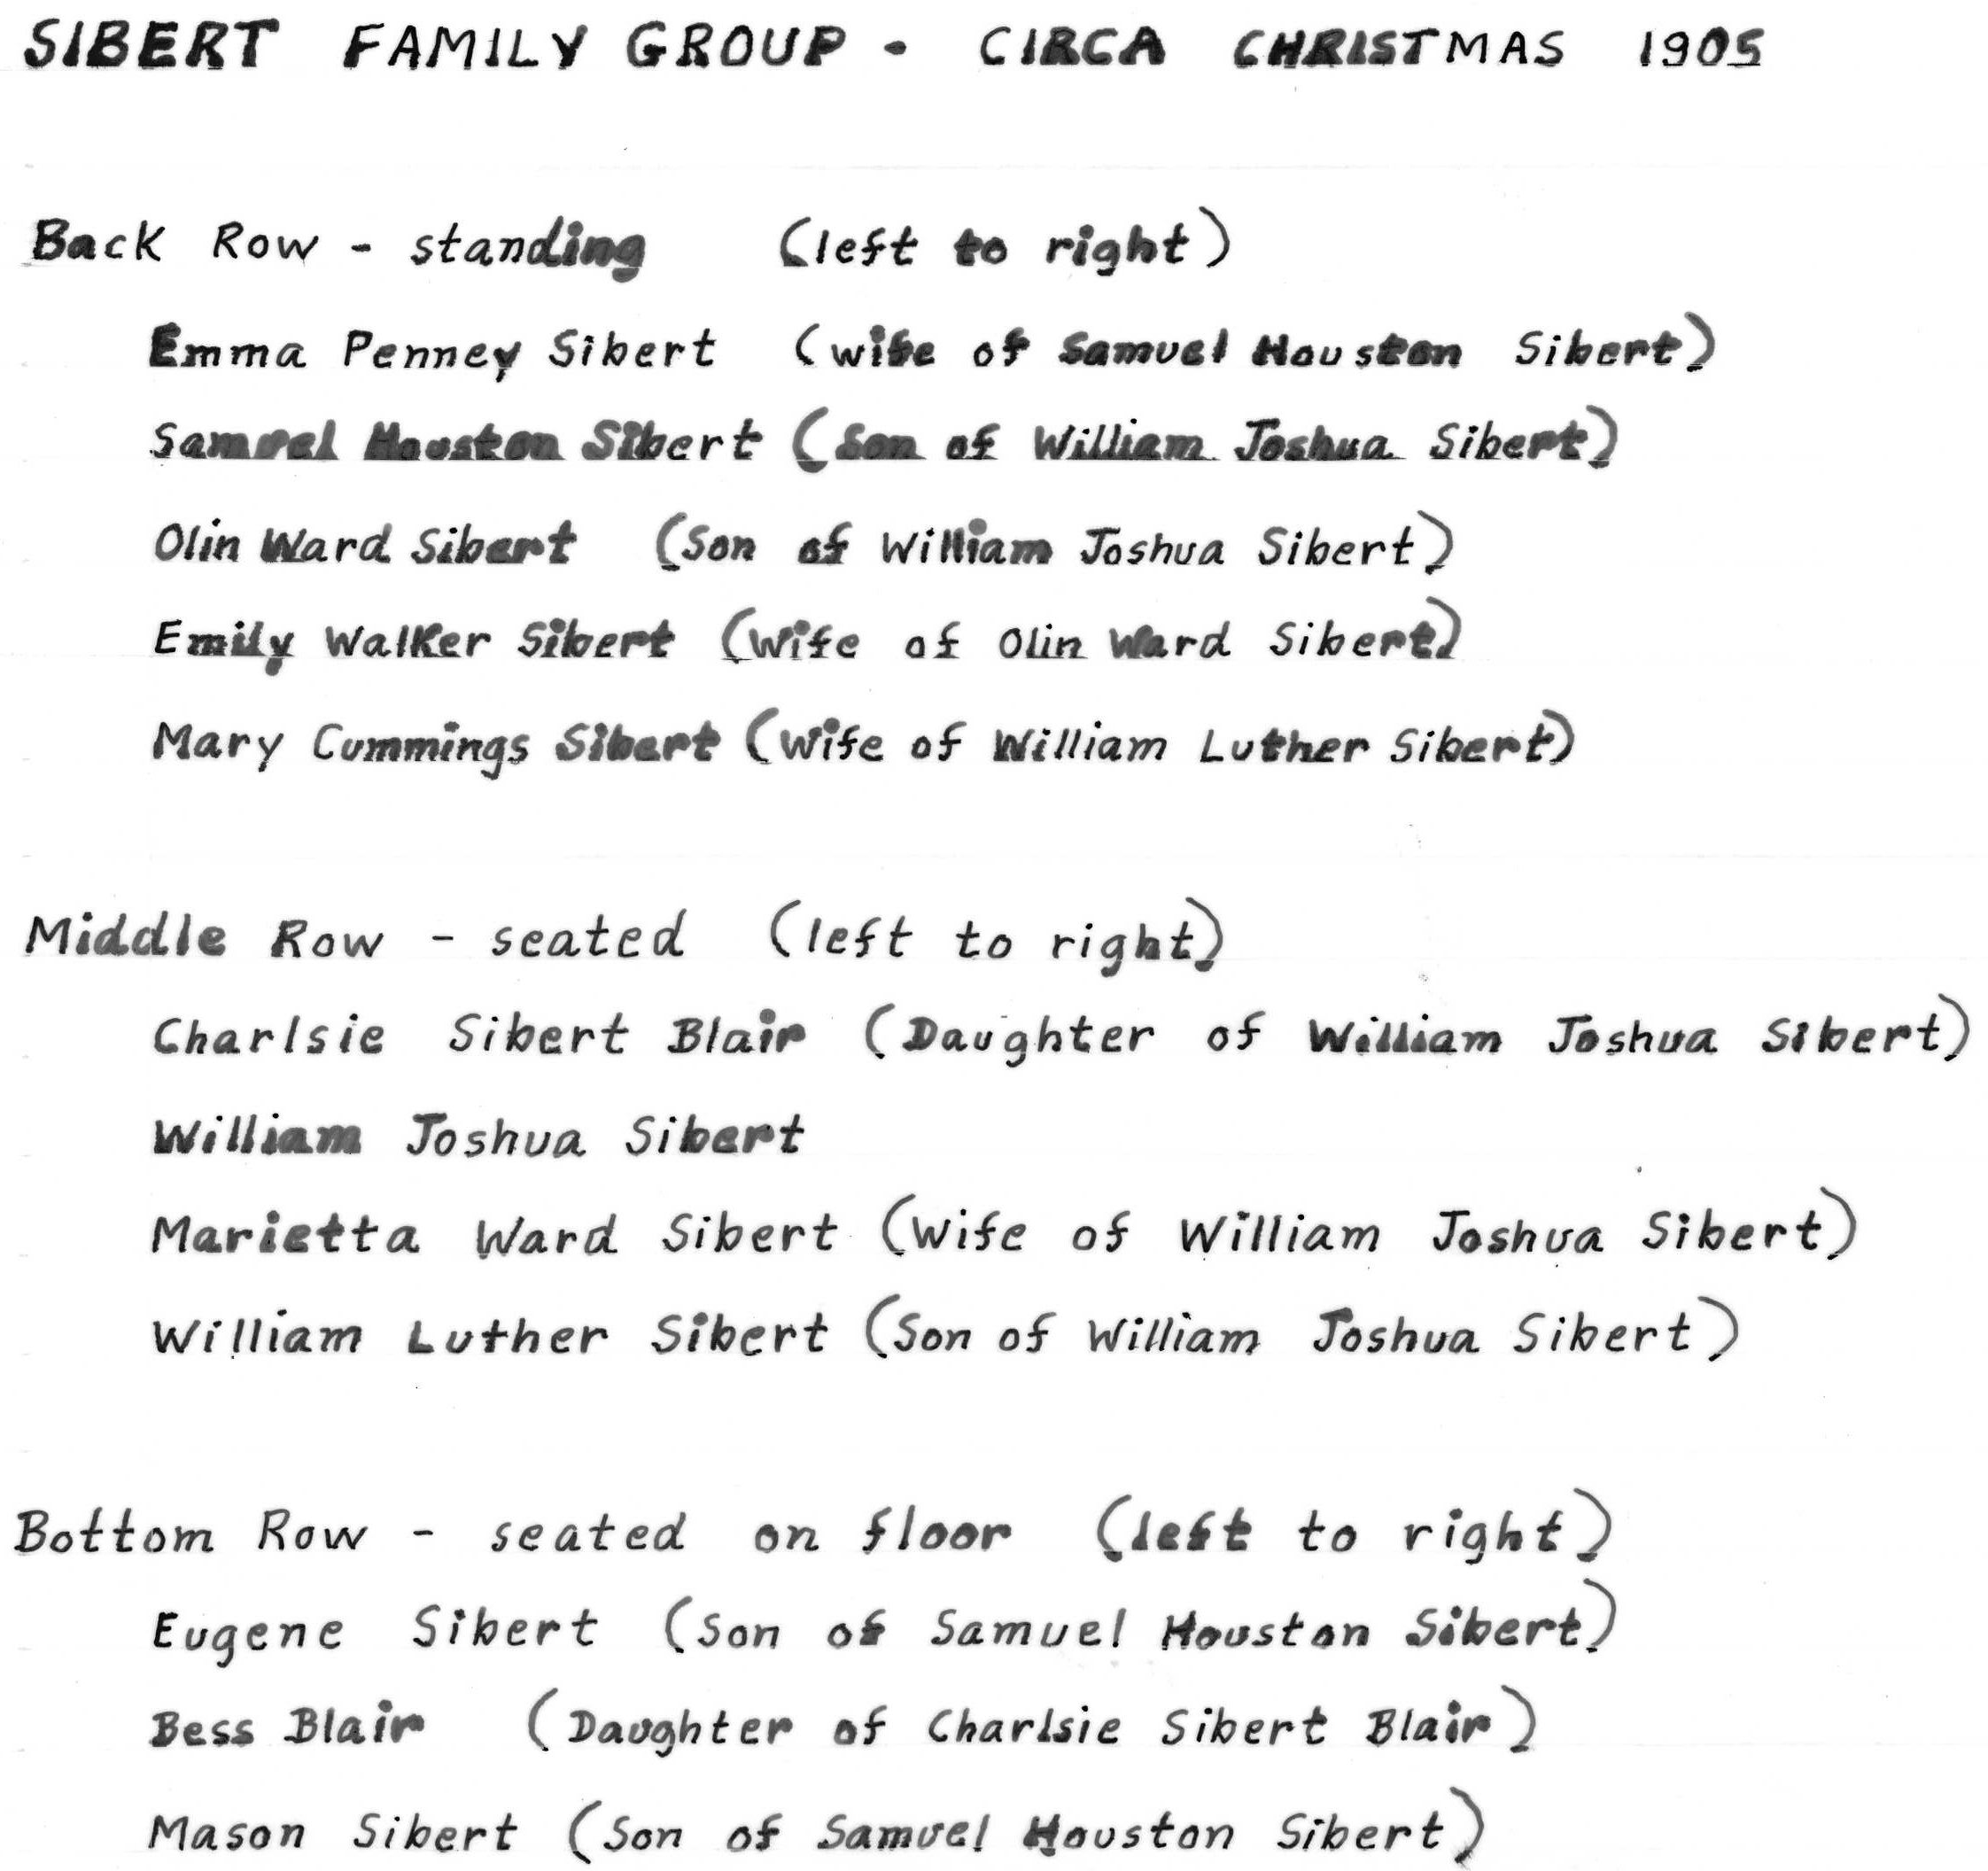 SIBERT FAMILY GROUP - CIRCA CHRISTMAS 1905
Back Row - standing (left to right)
Emma Penney Sibert (wife of Samuel Houston Sibert)
Samuel Houston Sibert (Son of William Joshua Sibert)
Olin Ward Sibert (Son of William Joshua Sibert)
Emily Walker Sibert (Wife of Olin Ward Sibert)
Mary Cummings Sibert (Wife of William Luther Sibert)
Middle Row - seated (left to right)
Charlsie Sibert Blair (Daughter of William Joshua Sibert)
William Joshua Sibert
Marietta Ward Sibert (Wife of William Joshua Sibert)
William Luther Sibert (Son of William Joshua Sibert)
Bottom Row - seated on floor (left to right)
Eugene Sibert (Son of Samuel Houston Sibert)
Bess Blair (Daughter of Charlsie Sibert Blair)
Mason Sibert (Son of Samuel Houston Sibert)